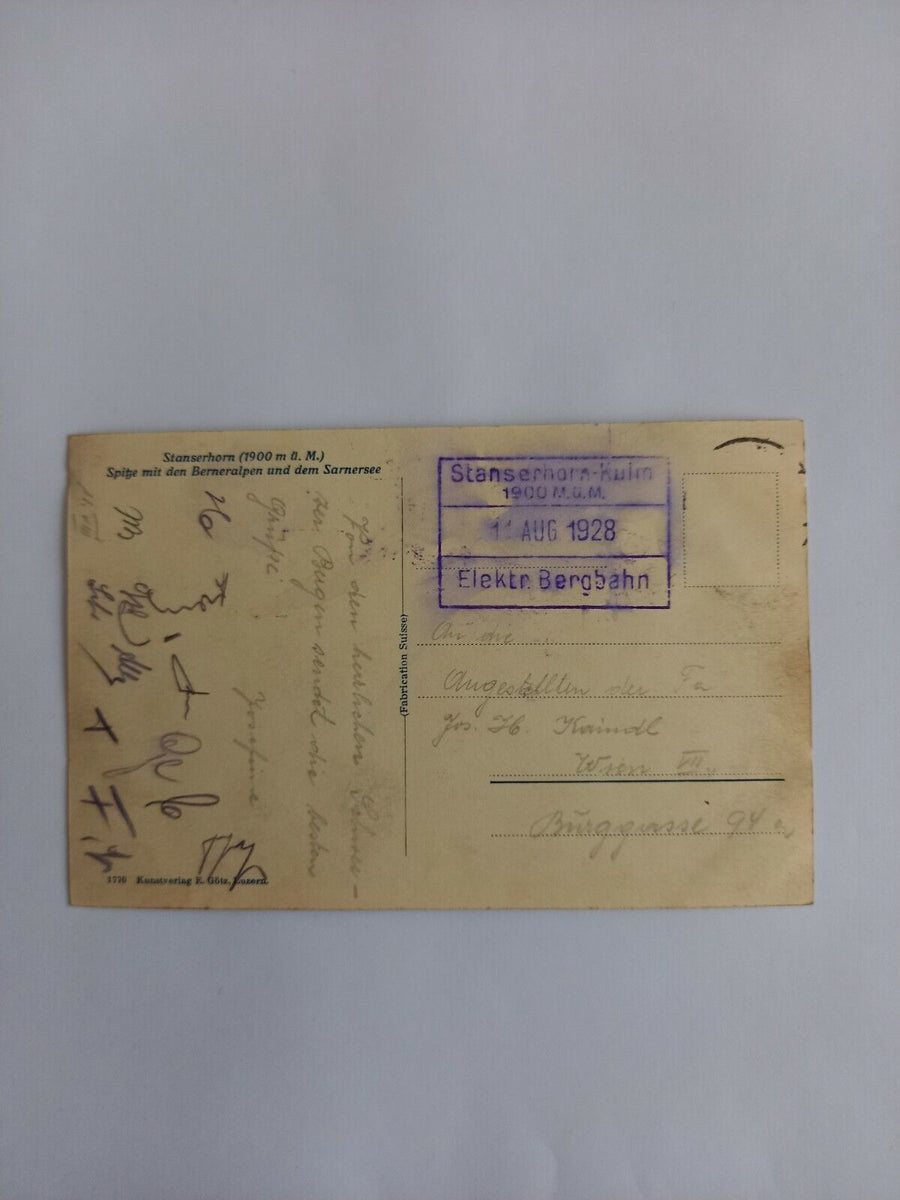 Stanserhorn (1900 m ü. M.)
Spitze mit den Berneralpen und dem Sarnersee
Von den herrlichen Schwei-
zer Bergen sendet die besten
Grüsse
Josefine
11. VIII
(Fabrication Suisse)
Stanserhorn-Kulm
1900 M.ü.M.
11 AUG 1928
Elektr. Bergbahn
An die
Angestellten der Fa
Jos. H. Kaindl
Wien VII.
Burggasse 94 a
1770 Kunstverlag E. Götz, Luzern.